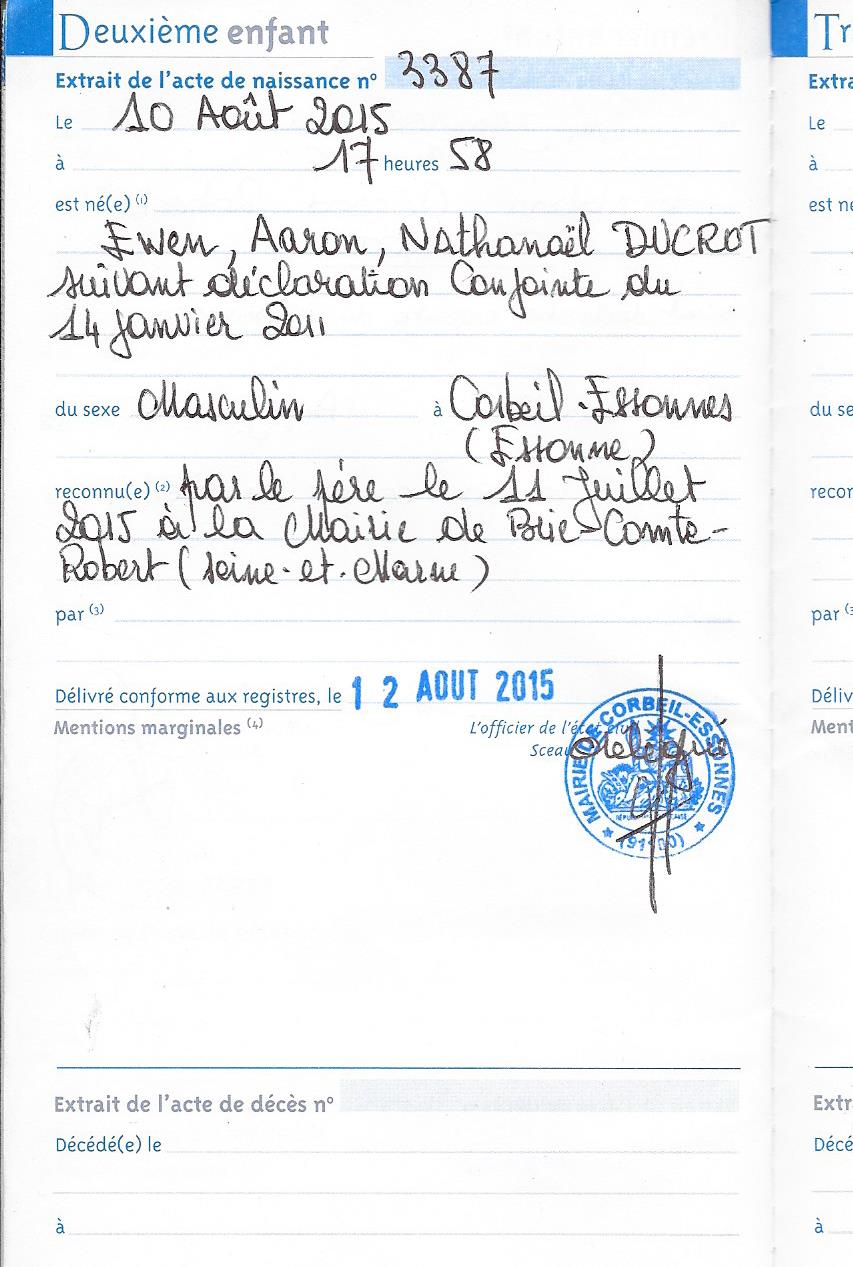 Deuxième enfant
Extrait de l'acte de naissance n° 3387
Le 10 Août 2015
à 17 heures 58
est né(e) (1)
Ewen, Aaron, Nathanaël DUCROT
suivant déclaration Conjointe du
14 Janvier 2011
du sexe Masculin à Corbeil-Essonnes
(Essonne)
reconnu(e) (2) par le père le 11 Juillet
2015 à la Mairie de Brie-Comte-
Robert (Seine-et-Marne)
par (3)
Délivré conforme aux registres, le 12 AOUT 2015
Mentions marginales (4)
L'officier de l'état civil
Sceau
MAIRIE DE CORBEIL-ESSONNES
Extrait de l'acte de décès n°
Décédé(e) le
à
Tr
Extra
Le
à
est né
du se
recon
par (3
Déliv
Ment
Extr
Décé
à